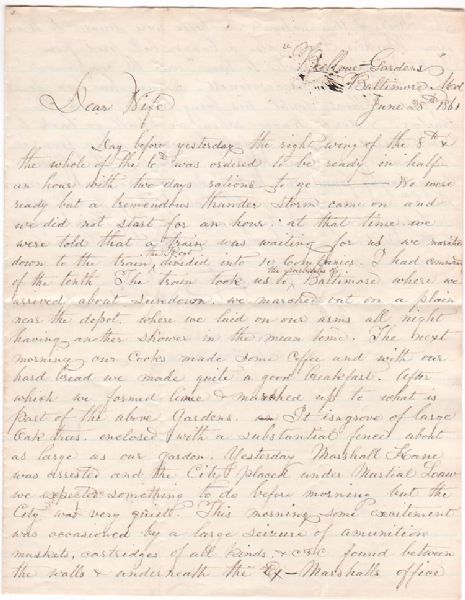 "Bellevue-Gardens"
Baltimore Md
June 28th 1861
Dear Wife
Day before yesterday the right wing of the 8th &
the whole of the 6th was ordered to be ready in half
an hour with two days rations to go ——— We were
ready but a tremendous thunder storm came on and
we did not start for an hour: at that time we
were told that a train was waiting for us we marched
down to the train, divided into 10 Companies. I had command
of the tenth The train took us to Baltimore where we
arrived about Sundown. we marched out on a plain
near the depot. where we laid on our arms all night
having another shower in the mean time. The next
morning our Cooks made some Coffee and with our
hard bread we made quite a good breakfast. After
which we formed line & marched up to what is
Part of the above Gardens. It is a grove of large
Oak trees. enclosed with a substantial fence about
as large as our garden. Yesterday Marshall Kane
was arrested and the City placed under Martial Law
we expected something to do before morning but the
City was very quiett. This morning some excitement
was occasioned by a large seizure of amunition
muskets, cartridges of all kinds, & c &c found between
the walls & underneath the Ex-Marshalls office